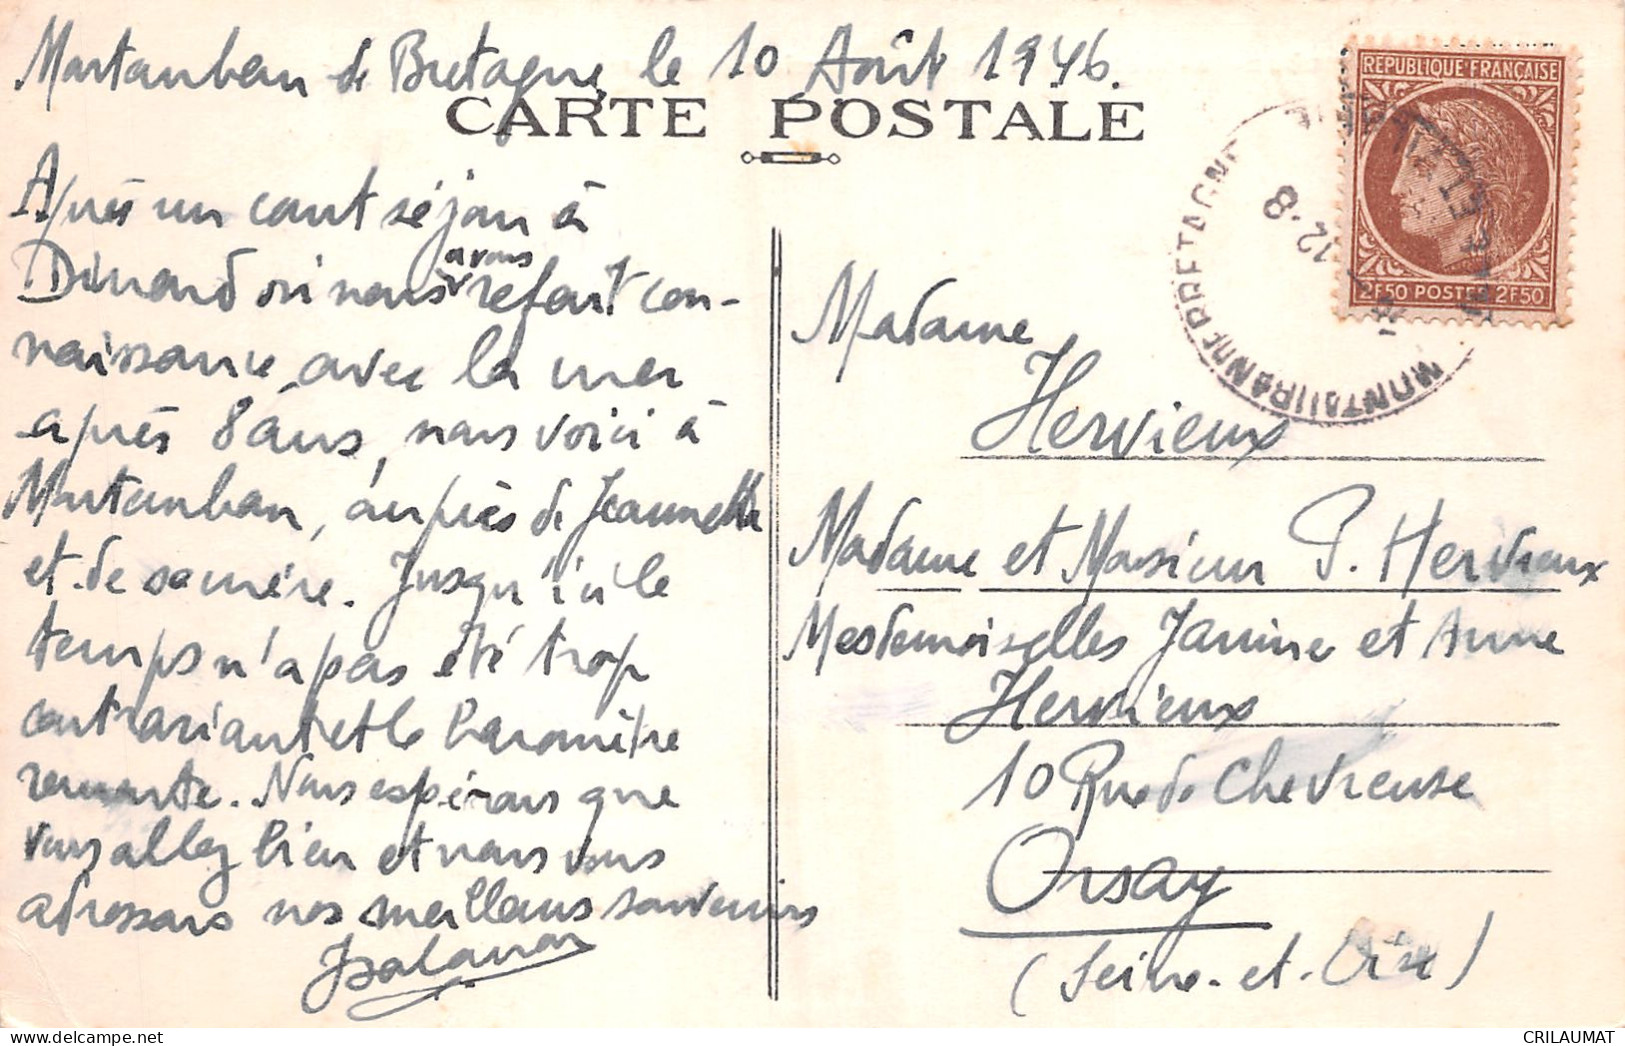 Montauban de Bretagne, le 10 Août 1946.
CARTE POSTALE
Après un court séjour à
Dinard où nous avons refait con-
naissance avec la mer
après 8 ans, nous voici à
Montauban, auprès de Jeannette
et de sa mère. Jusqu'ici le
temps n'a pas été trop
contrariant et le baromètre
remonte. Nous espérons que
vous allez bien et nous vous
adressons nos meilleurs souvenirs
REPUBLIQUE FRANÇAISE
2F50 POSTES 2F50
MONTAUBAN DE BRETAGNE
12-8
ILLE-ET-VILAINE
Madame
Hervieux
Madame et Monsieur P. Hervieux
Mesdemoiselles Janine et Anne
Hervieux
10 Rue de Chevreuse
Orsay
(Seine-et-Oise)
CRILAUMAT